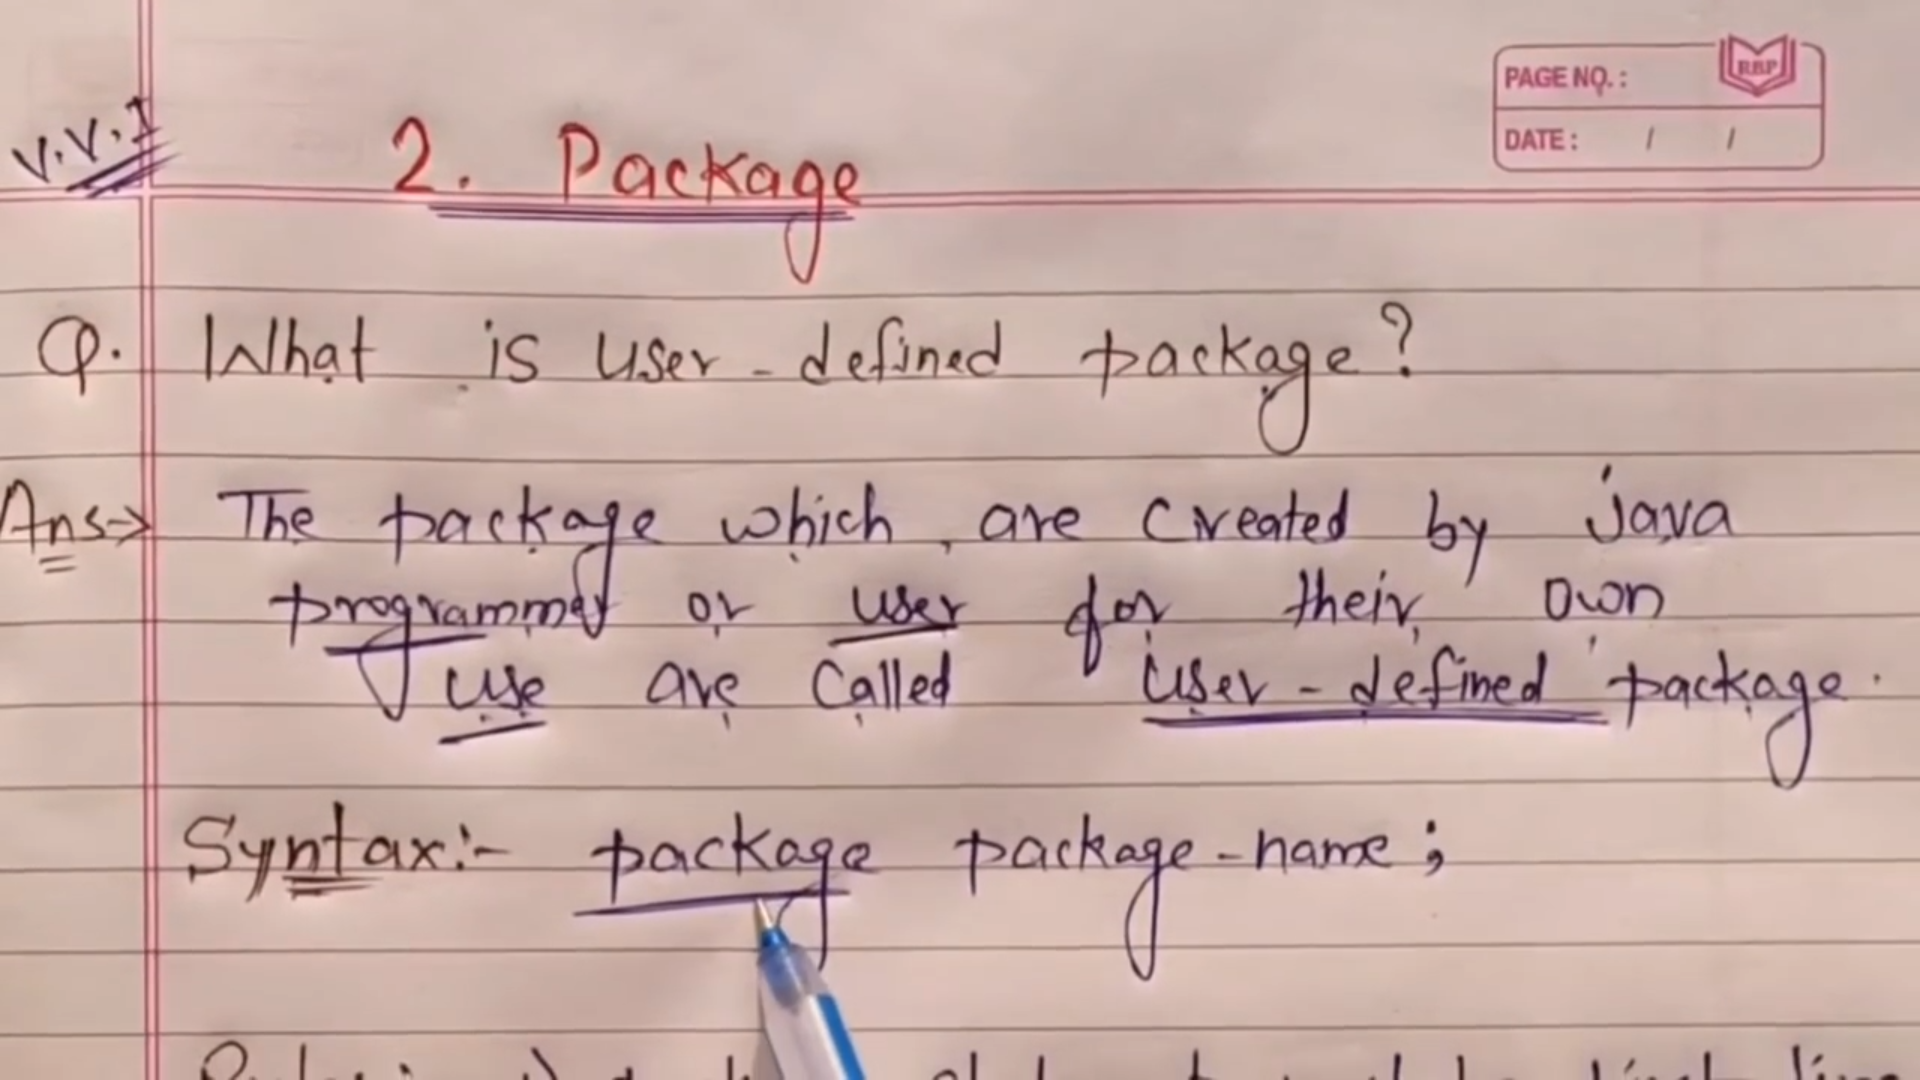 PAGE NO.:
RBP
DATE: / /
V.V.I
2. Package
Q. What is user-defined package?
Ans→ The package which are created by java
programmer or user for their own
use are called user-defined package.
Syntax:- package package-name;